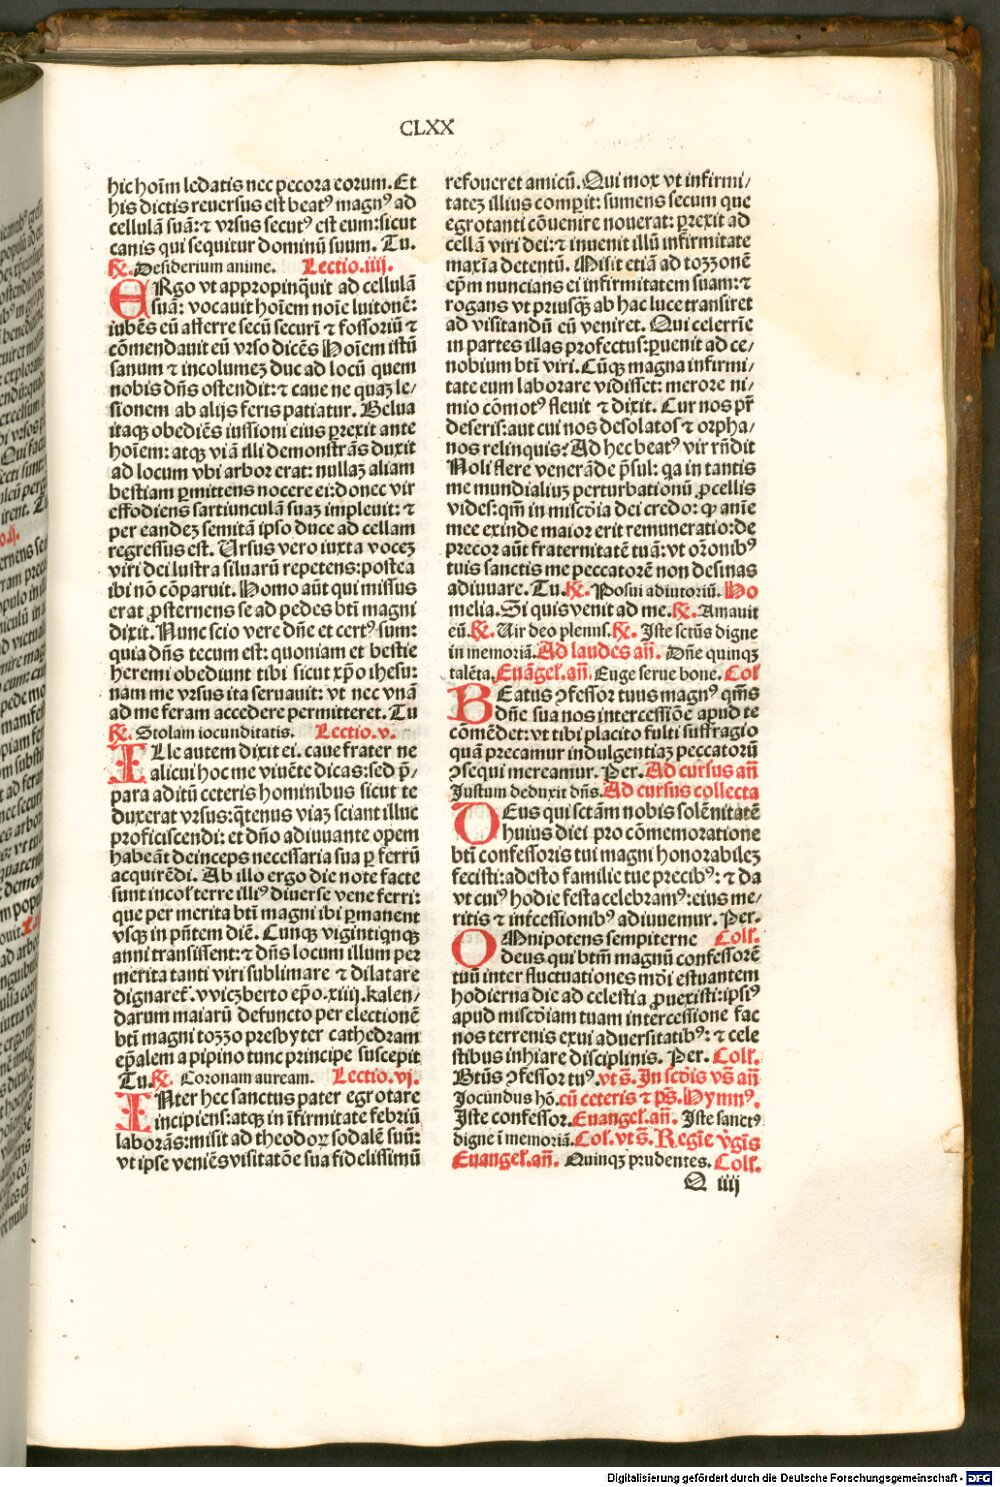 CLXX
hic hoīm ledatis nec pecora eorum. Et
his dictis reuersus est beatꝰ magnꝰ ad
cellulā suā: ⁊ vrsus secutꝰ est eum: sicut
canis qui sequitur dominū suum. Tu.
℟. Desiderium anime. Lectio.iiij.
ERgo vt appropinq̄uit ad cellulā
suā: vocauit hoīem noīe luitonē:
iubēs eū afferre secū securī ⁊ fossoriū ⁊
cōmendauit eū vrso dicēs Hoīem istū
sanum ⁊ incolumeꝫ duc ad locū quem
nobis dn̄s ostendit: ⁊ caue ne quaꝫ le/
sionem ab alijs feris patiatur. Belua
itaqꝫ obediēs iussioni eius ꝑrexit ante
hoīem: atqꝫ viā illi demonstrās duxit
ad locum vbi arbor erat: nullaꝫ aliam
bestiam ꝑmittens nocere ei: donec vir
effodiens sartiunculā suaꝫ impleuit: ⁊
per eandeꝫ semitā ipso duce ad cellam
regressus est. Ursus vero iuxta voceꝫ
viri dei lustra siluarū repetens: postea
ibi nō cōparuit. Homo aūt qui missus
erat ꝓsternens se ad pedes btī magni
dixit. Nunc scio vere dn̄e et certꝰ sum:
quia dn̄s tecum est: quoniam et bestie
heremi obediunt tibi sicut xp̄o ihesu:
nam me vrsus ita seruauit: vt nec vnā
ad me feram accedere permitteret. Tu
℟. Stolam iocunditatis. Lectio.v.
ILle autem dixit ei. caue frater ne
alicui hoc me viuēte dicas: sed p̄/
para aditū ceteris hominibus sicut te
duxerat vrsus: q̄tenus viaꝫ sciant illuc
proficiscendi: et dn̄o adiuuante opem
habeāt deinceps necessaria sua ꝑ ferrū
acquirēdi. Ab illo ergo die note facte
sunt incoł terre illiꝰ diuerse vene ferri:
que per merita btī magni ibi ꝑmanent
vsqꝫ in pn̄tem diē. Cunqꝫ vigintiqnqꝫ
anni transissent: ⁊ dn̄s locum illum per
merita tanti viri sublimare ⁊ dilatare
dignaret̄. vviczberto ep̄o.xiiij.kalen/
darum maiarū defuncto per electionē
btī magni tozzo presbyter cathedram
ep̄alem a pipino tunc principe suscepit
Tu.℟. Coronam auream. Lectio.vj.
INter hec sanctus pater egrotare
incipiens: atqꝫ in īfirmitate febriū
laborās: misit ad theodoꝝ sodalē suū:
vt ipse veniēs visitatōe sua fidelissimū
refoueret amicū. Qui mox vt infirmi/
tateꝫ illius comperit: sumens secum que
egrotanti cōuenire nouerat: ꝑrexit ad
cellā viri dei: ⁊ inuenit illū infirmitate
maxīa detentū. Misit etiā ad tozzonē
ep̄m nuncians ei infirmitatem suam: ⁊
rogans vt priusqꝫ ab hac luce transiret
ad visitandū eū veniret. Qui celerrīe
in partes illas profectus: ꝑuenit ad ce/
nobium btī viri. Cūqꝫ magna infirmi/
tate eum laborare vidisset: merore ni/
mio cōmotꝰ fleuit ⁊ dixit. Cur nos pr̄
deseris: aut cui nos desolatos ⁊ orpha/
nos relinquis? Ad hec beatꝰ vir rn̄dit
Noli flere venerāde p̄sul: qa in tantis
me mundialiuꝫ perturbationū ꝓcellis
vides: qm̄ in misc̄dia dei credo: ꝙ anīe
mee exinde maior erit remuneratio: de
precor aūt fraternitatē tuā: vt or̄onibꝰ
tuis sanctis me peccatorē non desinas
adiuuare. Tu.℟. Posui adiutoriū. Ho
melia. Si quis venit ad me.℟. Amauit
eū.℟. Uir deo plenus.℟. Iste sctūs digne
in memoriā. Ad laudes an̄. Dn̄e quinqꝫ
talēta. Euāgeł. an̄. Euge serue bone. Coł
BEatus ꝯfessor tuus magnꝰ qm̄s
dn̄e sua nos intercessiōe apud te
cōmēdet: vt tibi placito fulti suffragio
quā precamur indulgentiaꝫ peccatorū
ꝯsequi mereamur. Per. Ad cursus an̄
Iustum deduxit dn̄s. Ad cursus collecta
DEus qui sctām nobis solēnitatē
huius diei pro cōmemoratione
btī confessoris tui magni honorabileꝫ
fecisti: adesto familie tue precibꝰ: ⁊ da
vt cuiꝰ hodie festa celebramꝰ: eius me/
ritis ⁊ intēcessionibꝰ adiuuemur. Per.
OMnipotens sempiterne Cołł.
deus qui btm̄ magnū confessorē
tuū inter fluctuationes mōi estuantem
hodierna die ad celestia ꝓuexisti: ipsiꝰ
apud misc̄diam tuam intercessione fac
nos terrenis exui aduersitatibꝰ: ⁊ cele
stibus inhiare disciplinis. Per. Cołł.
Btūs ꝯfessor tuꝰ. vt s̄. In scd̄is vs̄ an̄
Iocundus hō. cū ceteris ⁊ ps̄. Hymnꝰ.
Iste confessor. Euangeł. an̄. Iste sanctꝰ
digne ī memoriā. Coł. vt s̄. Regīe v̄gīs
Euangeł. an̄. Quinqꝫ prudentes. Cołł.
Q iiij
Digitalisierung gefördert durch die Deutsche Forschungsgemeinschaft - DFG